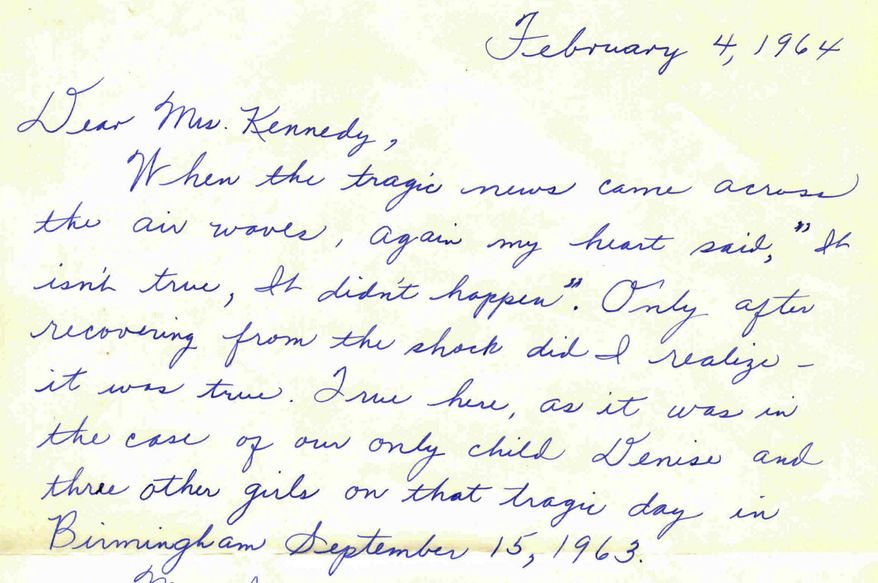 February 4, 1964
Dear Mrs. Kennedy,
When the tragic news came across
the air waves, again my heart said, "It
isn't true, It didn't happen". Only after
recovering from the shock did I realize -
it was true. True here, as it was in
the case of our only child Denise and
three other girls on that tragic day in
Birmingham September 15, 1963.